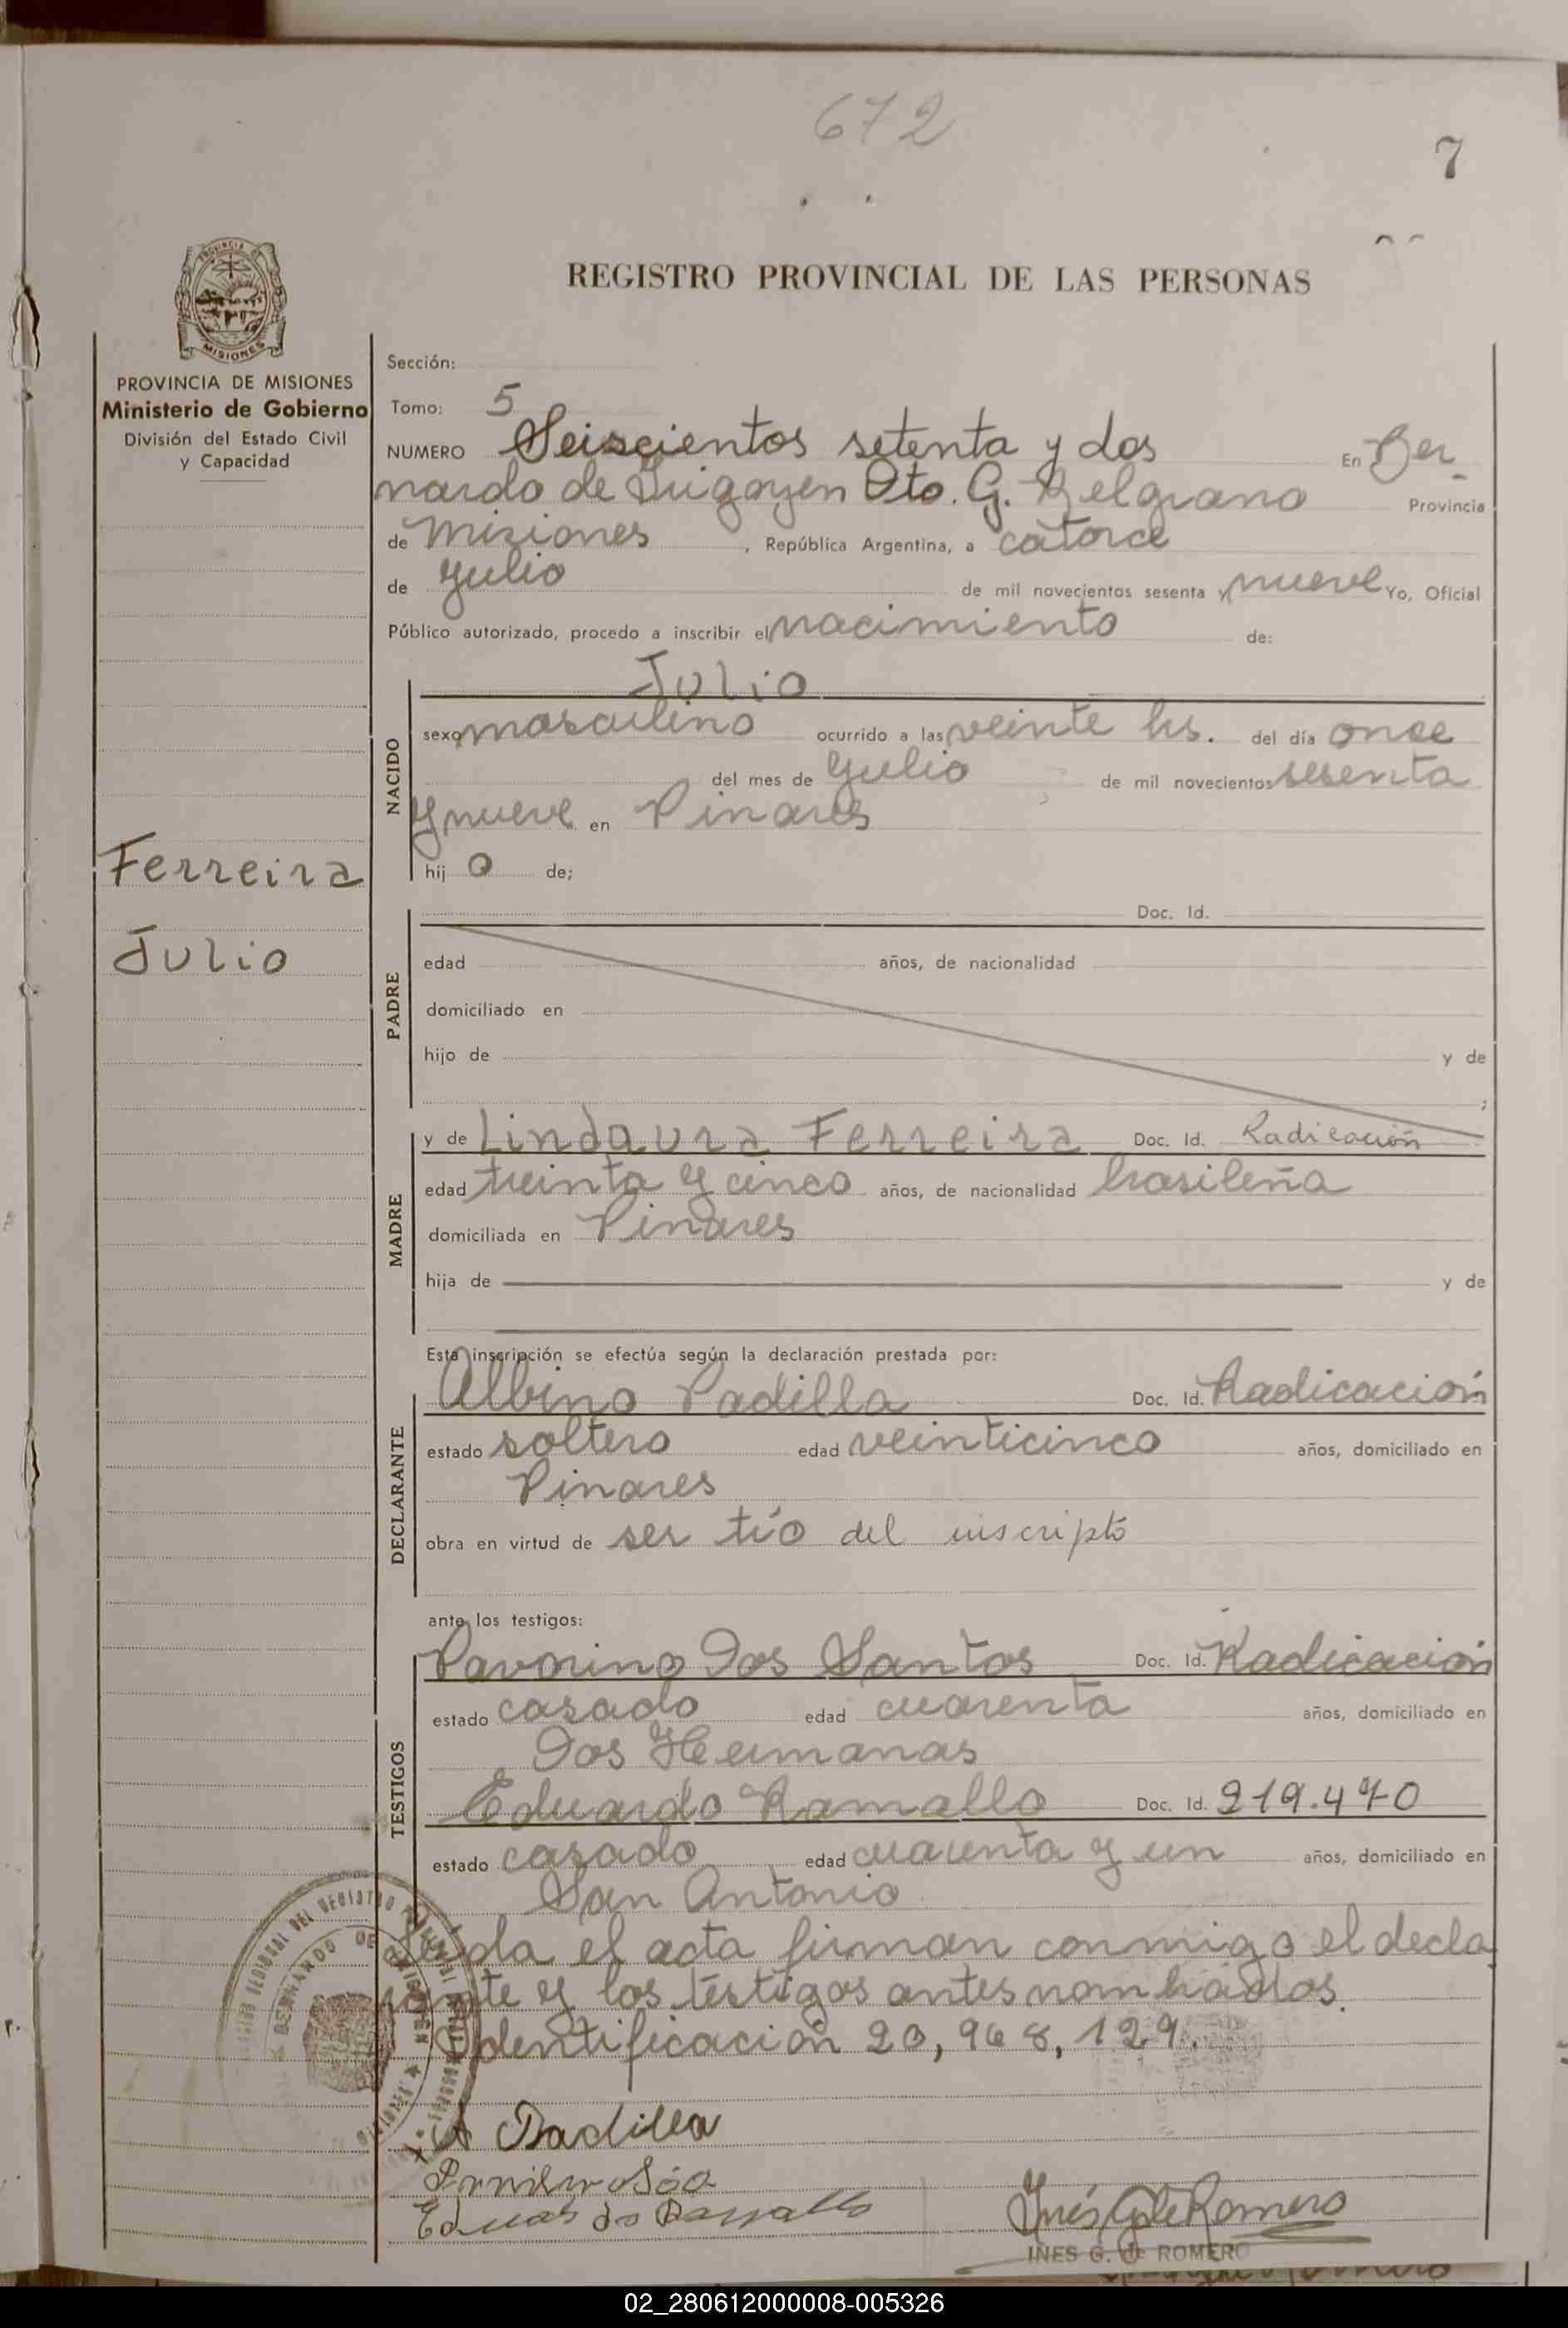 672
7
REGISTRO PROVINCIAL DE LAS PERSONAS
PROVINCIA DE MISIONES
Ministerio de Gobierno
División del Estado Civil
y Capacidad
Ferreira
Julio
Sección:
Tomo: 5
NUMERO Seiscientos setenta y dos En Ber-
nardo de Irigoyen Dto. G. Belgrano Provincia
de Misiones, República Argentina, a catorce
de Julio de mil novecientos sesenta y nueve Yo, Oficial
Público autorizado, procedo a inscribir el nacimiento de:
NACIDO
Julio
sexo masculino ocurrido a las veinte hs. del día once
del mes de Julio de mil novecientos sesenta
y nueve en Pinares
hij o de;
PADRE
Doc. Id.
edad años, de nacionalidad
domiciliado en
hijo de y de
;
MADRE
y de Lindaura Ferreira Doc. Id. Radicación
edad treinta y cinco años, de nacionalidad brasileña
domiciliada en Pinares
hija de y de
Esta inscripción se efectúa según la declaración prestada por:
DECLARANTE
Albino Padilla Doc. Id. Radicación
estado soltero edad veinticinco años, domiciliado en
Pinares
obra en virtud de ser tío del inscripto
ante los testigos:
TESTIGOS
Dos Santos Doc. Id. Radicación
estado casado edad cuarenta años, domiciliado en
Dos Hermanas
Eduardo Ramallo Doc. Id. 219.470
estado casado edad cuarenta y un años, domiciliado en
San Antonio
Leída el acta firman conmigo el decla
rante y los testigos antes nombrados.
Identificación 20,968,129.
A Padilla
Inés G de Romero
INES G. de ROMERO
02_280612000008-005326